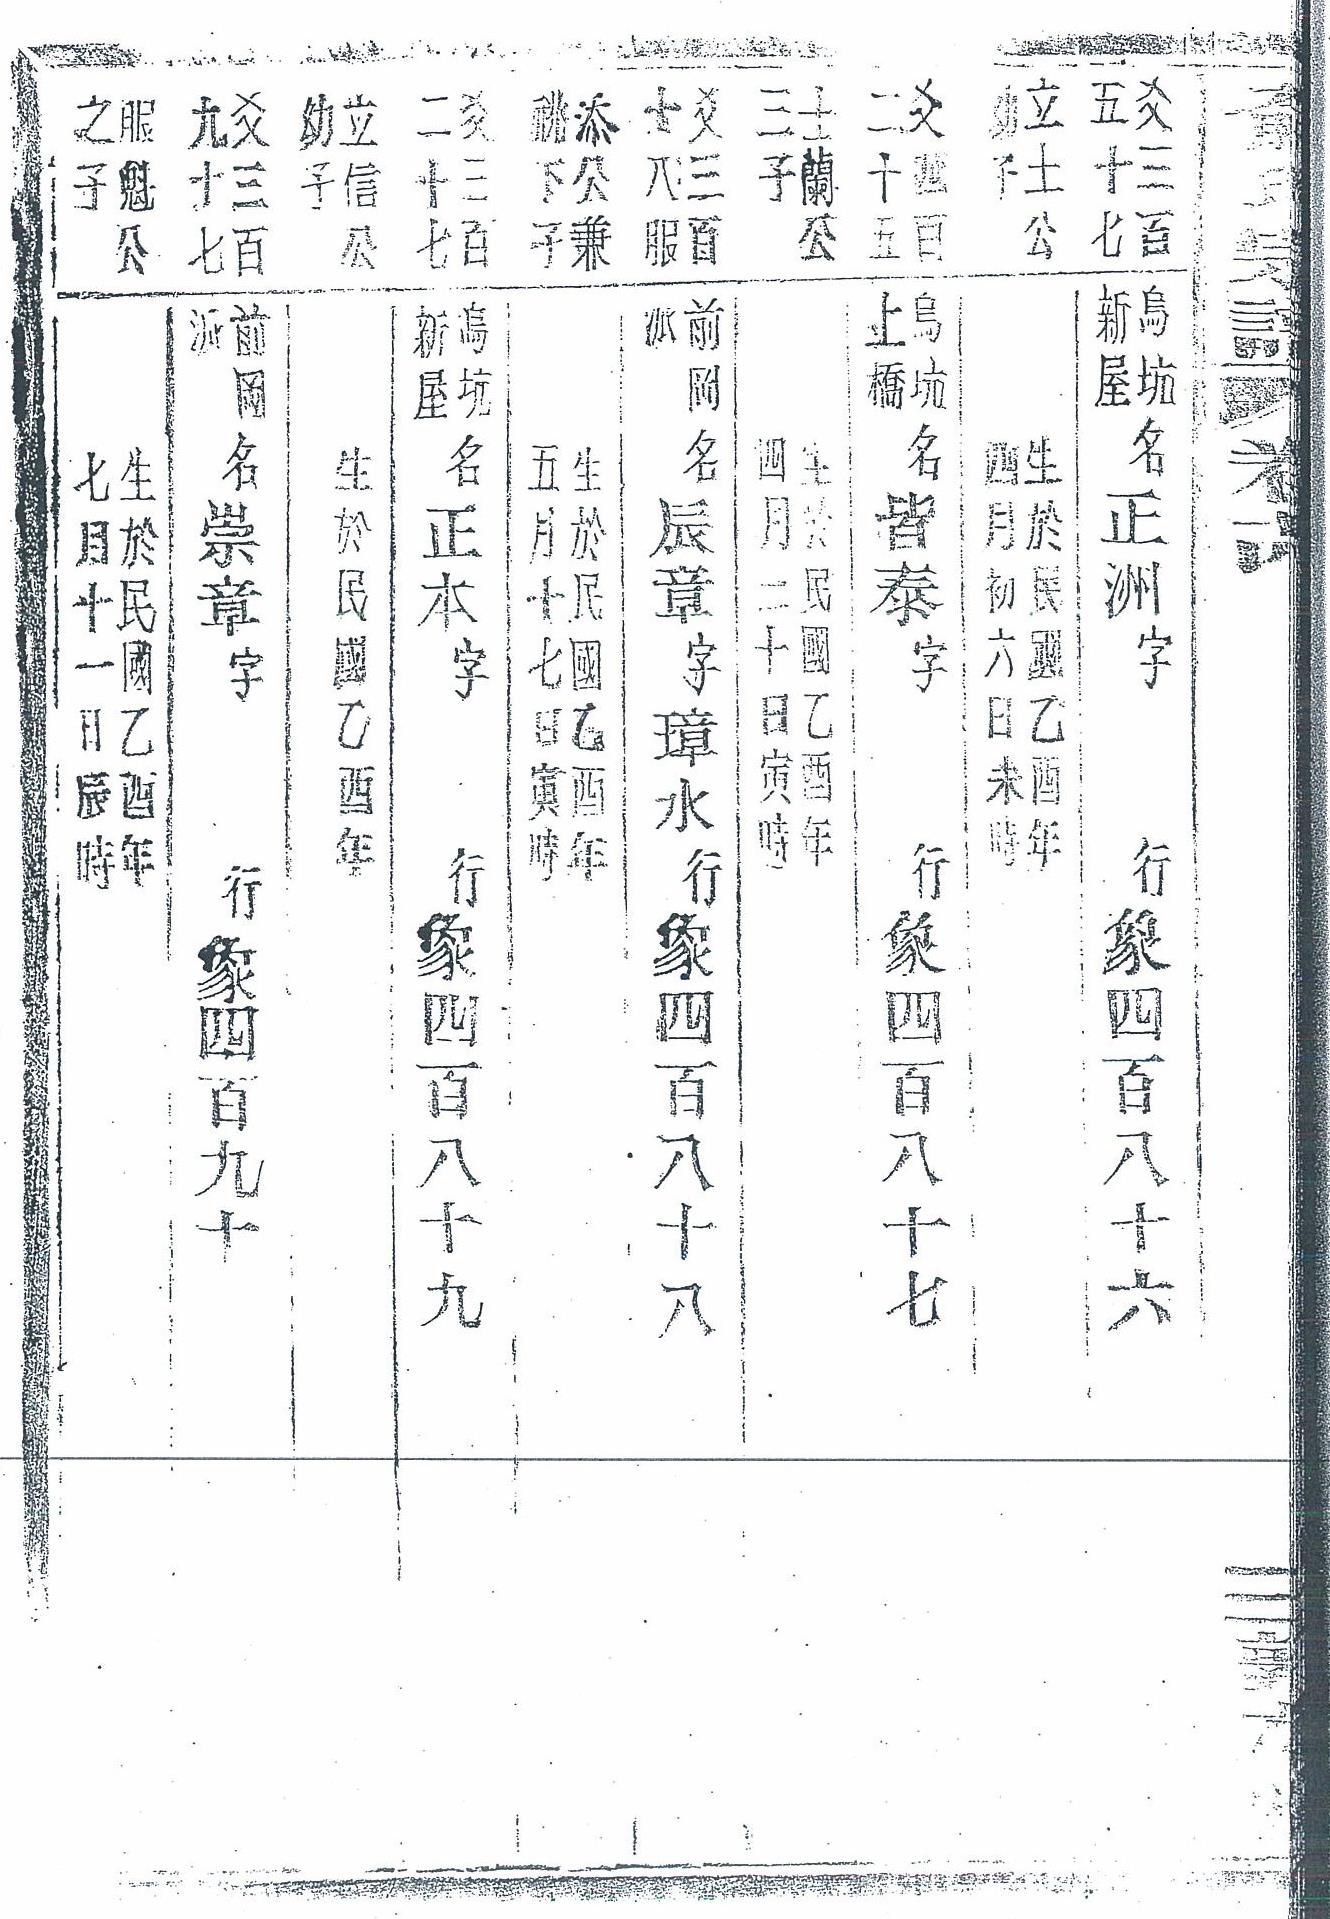 爻三百
五十七
立士公
幼子
烏坑
新屋
名正洲字　行象四百八十六
生於民國乙酉年
四月初六日未時
爻四百
二十五
士蘭公
三子
烏坑
上橋
名皆泰字　行象四百八十七
生於民國乙酉年
四月二十日寅時
爻三百
十八服
添公兼
祧下子
前岡
派
名辰章字璋水行象四百八十八
生於民國乙酉年
五月十七日寅時
爻三百
二十七
立信公
幼子
烏坑
新屋
名正本字　行象四百八十九
生於民國乙酉年
爻三百
九十七
服魁公
之子
前岡
派
名崇章字　行象四百九十
生於民國乙酉年
七月十一日辰時